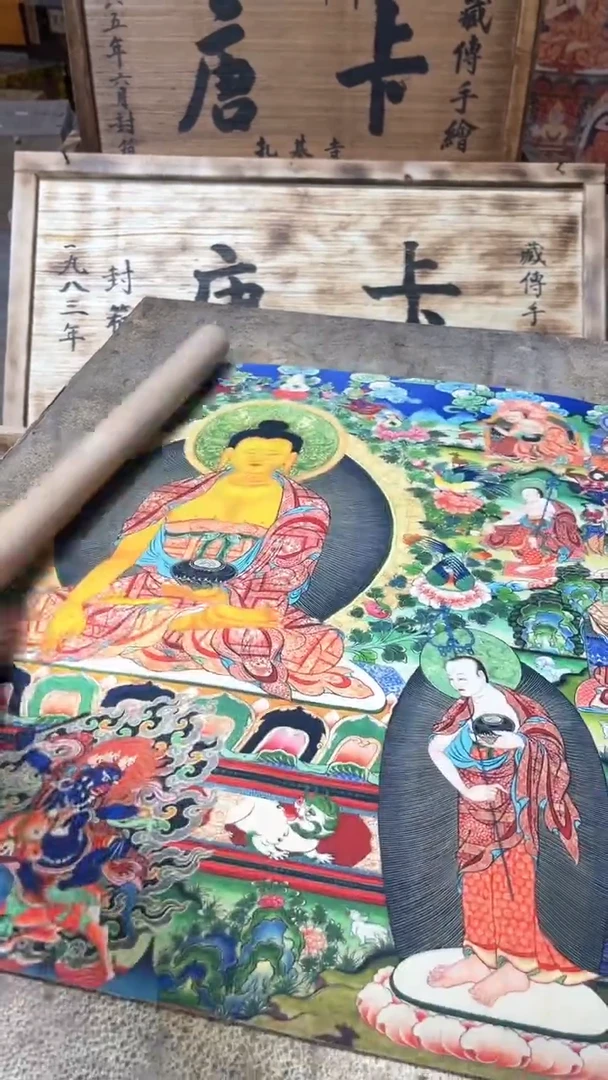 藏傳手繪
唐卡
扎基寺
五年六月封
藏傳手
唐卡
封箱
一九八三年